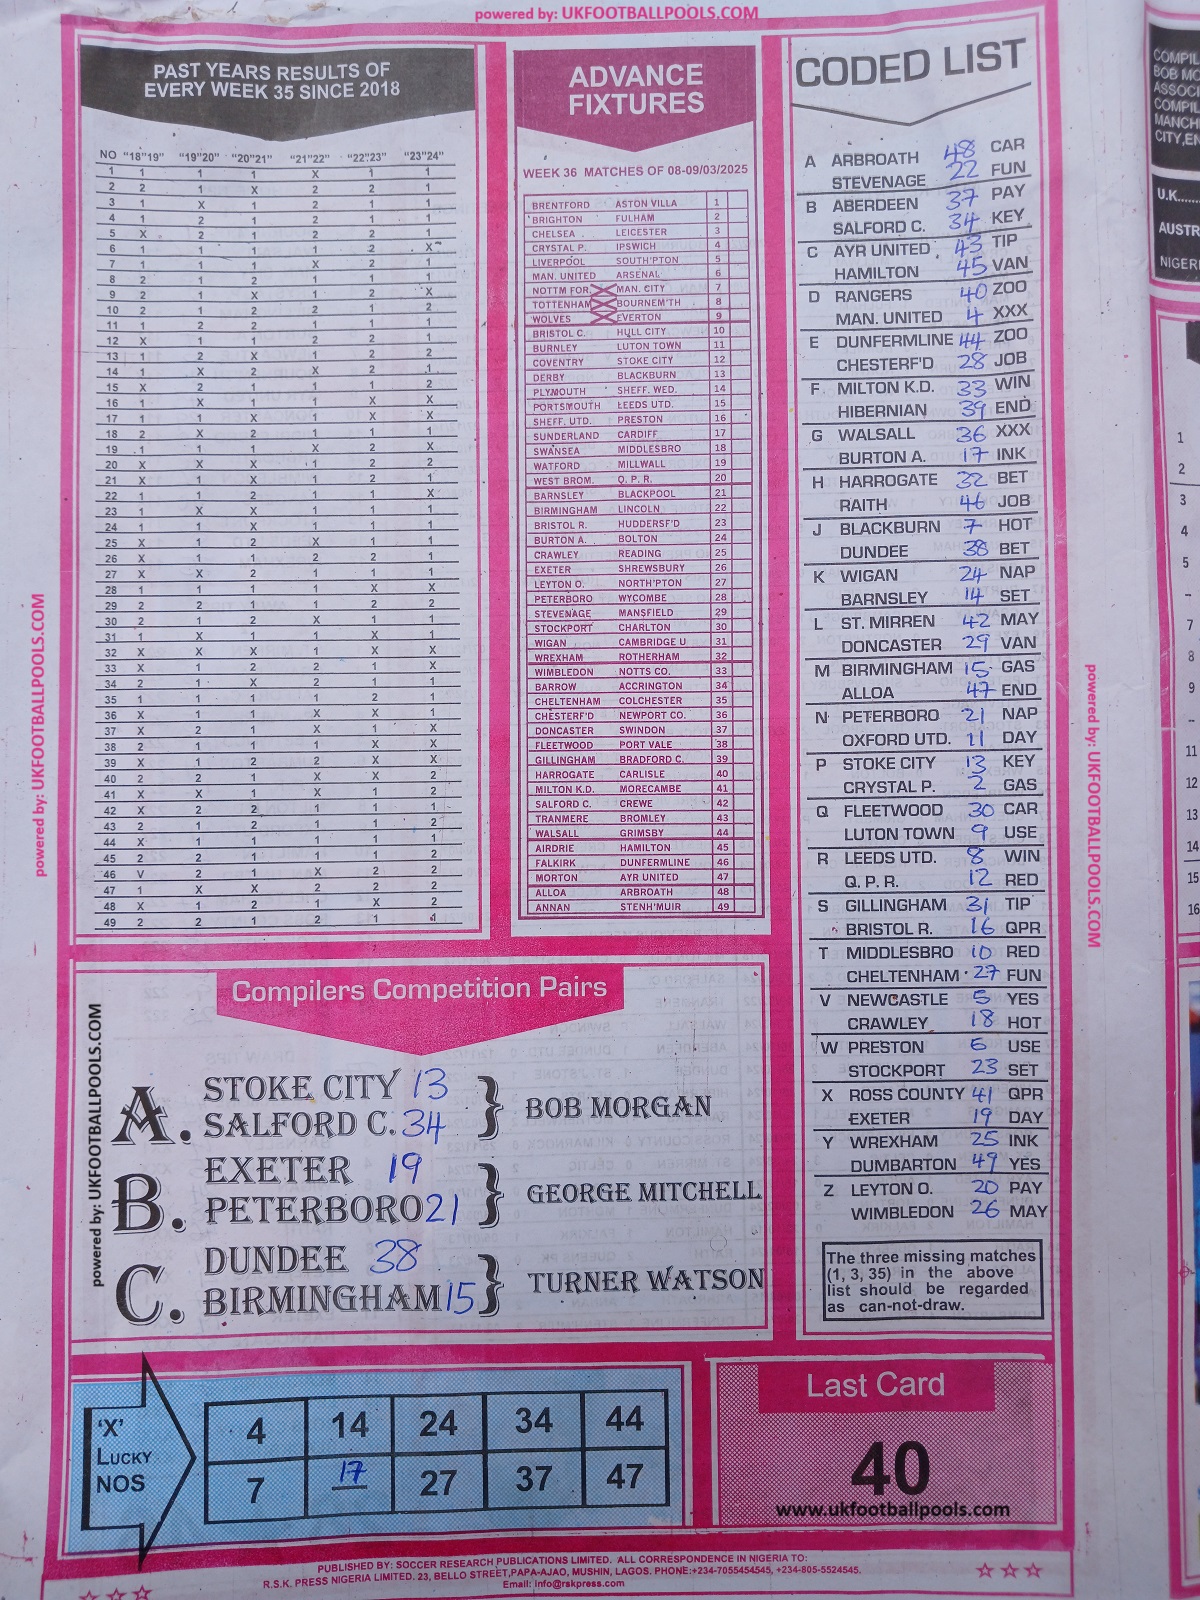 powered by: UKFOOTBALLPOOLS.COM
PAST YEARS RESULTS OF
EVERY WEEK 35 SINCE 2018
NO "18"19" "19"20" "20"21" "21"22" "22"23" "23"24"
1 1 1 1 X 1 1
2 2 1 X 2 2 1
3 1 X 1 2 1 1
4 1 2 1 2 1 1
5 X 2 1 2 2 1
6 1 1 1 1 2 X
7 1 1 1 X 2 1
8 2 1 2 1 1 1
9 2 1 X 1 2 X
10 2 1 2 2 1 2
11 1 2 2 1 1 1
12 X 1 1 2 2 1
13 1 2 X 1 2 2
14 1 X 2 X 2 1
15 X 2 1 1 1 2
16 1 X 1 1 X X
17 1 1 X 1 X X
18 2 X 2 1 1 1
19 1 1 1 X 2 X
20 X X X 1 2 2
21 X 1 X 1 2 1
22 1 1 2 1 1 X
23 1 X X 1 1 1
24 1 1 X 1 1 1
25 X 1 2 X 1 1
26 X 1 1 2 2 1
27 X X 2 1 1 1
28 1 1 1 1 X X
29 2 2 1 1 2 2
30 2 1 2 X 1 1
31 1 X 1 1 X 1
32 X X X 1 X X
33 X 1 2 2 1 X
34 2 1 X 2 1 1
35 1 1 1 1 2 1
36 X 1 1 X X 1
37 X 2 1 X 1 X
38 2 1 1 1 X X
39 X 1 2 2 X X
40 2 2 1 X X 2
41 X X 1 X 1 2
42 X 2 2 1 1 1
43 2 1 2 1 1 2
44 X 1 1 1 1 1
45 2 2 1 1 1 2
46 V 2 1 X 2 2
47 1 X X 2 2 2
48 X 1 2 1 X 2
49 2 2 1 2 1 1
ADVANCE
FIXTURES
WEEK 36 MATCHES OF 08-09/03/2025
BRENTFORD ASTON VILLA 1
BRIGHTON FULHAM 2
CHELSEA LEICESTER 3
CRYSTAL P. IPSWICH 4
LIVERPOOL SOUTH'PTON 5
MAN. UNITED ARSENAL 6
NOTTM FOR. MAN. CITY 7
TOTTENHAM BOURNEM'TH 8
WOLVES EVERTON 9
BRISTOL C. HULL CITY 10
BURNLEY LUTON TOWN 11
COVENTRY STOKE CITY 12
DERBY BLACKBURN 13
PLYMOUTH SHEFF. WED. 14
PORTSMOUTH LEEDS UTD. 15
SHEFF. UTD. PRESTON 16
SUNDERLAND CARDIFF 17
SWANSEA MIDDLESBRO 18
WATFORD MILLWALL 19
WEST BROM. Q. P. R. 20
BARNSLEY BLACKPOOL 21
BIRMINGHAM LINCOLN 22
BRISTOL R. HUDDERSF'D 23
BURTON A. BOLTON 24
CRAWLEY READING 25
EXETER SHREWSBURY 26
LEYTON O. NORTH'PTON 27
PETERBORO WYCOMBE 28
STEVENAGE MANSFIELD 29
STOCKPORT CHARLTON 30
WIGAN CAMBRIDGE U 31
WREXHAM ROTHERHAM 32
WIMBLEDON NOTTS CO. 33
BARROW ACCRINGTON 34
CHELTENHAM COLCHESTER 35
CHESTERF'D NEWPORT CO. 36
DONCASTER SWINDON 37
FLEETWOOD PORT VALE 38
GILLINGHAM BRADFORD C. 39
HARROGATE CARLISLE 40
MILTON K.D. MORECAMBE 41
SALFORD C. CREWE 42
TRANMERE BROMLEY 43
WALSALL GRIMSBY 44
AIRDRIE HAMILTON 45
FALKIRK DUNFERMLINE 46
MORTON AYR UNITED 47
ALLOA ARBROATH 48
ANNAN STENH'MUIR 49
CODED LIST
A ARBROATH 48 CAR
STEVENAGE 22 FUN
B ABERDEEN 37 PAY
SALFORD C. 34 KEY
C AYR UNITED 43 TIP
HAMILTON 45 VAN
D RANGERS 40 ZOO
MAN. UNITED 4 XXX
E DUNFERMLINE 44 ZOO
CHESTERF'D 28 JOB
F MILTON K.D. 33 WIN
HIBERNIAN 39 END
G WALSALL 36 XXX
BURTON A. 17 INK
H HARROGATE 32 BET
RAITH 46 JOB
J BLACKBURN 7 HOT
DUNDEE 38 BET
K WIGAN 24 NAP
BARNSLEY 14 SET
L ST. MIRREN 42 MAY
DONCASTER 29 VAN
M BIRMINGHAM 15 GAS
ALLOA 47 END
N PETERBORO 21 NAP
OXFORD UTD. 11 DAY
P STOKE CITY 13 KEY
CRYSTAL P. 2 GAS
Q FLEETWOOD 30 CAR
LUTON TOWN 9 USE
R LEEDS UTD. 8 WIN
Q. P. R. 12 RED
S GILLINGHAM 31 TIP
BRISTOL R. 16 QPR
T MIDDLESBRO 10 RED
CHELTENHAM 27 FUN
V NEWCASTLE 5 YES
CRAWLEY 18 HOT
W PRESTON 6 USE
STOCKPORT 23 SET
X ROSS COUNTY 41 QPR
EXETER 19 DAY
Y WREXHAM 25 INK
DUMBARTON 49 YES
Z LEYTON O. 20 PAY
WIMBLEDON 26 MAY
The three missing matches
(1, 3, 35) in the above
list should be regarded
as can-not-draw.
powered by: UKFOOTBALLPOOLS.COM
powered by: UKFOOTBALLPOOLS.COM
Compilers Competition Pairs
powered by: UKFOOTBALLPOOLS.COM
A. STOKE CITY 13
SALFORD C. 34
BOB MORGAN
B. EXETER 19
PETERBORO 21
GEORGE MITCHELL
C. DUNDEE 38
BIRMINGHAM 15
TURNER WATSON
'X'
LUCKY
NOS
4 14 24 34 44
7 17 27 37 47
Last Card
40
www.ukfootballpools.com
PUBLISHED BY: SOCCER RESEARCH PUBLICATIONS LIMITED. ALL CORRESPONDENCE IN NIGERIA TO:
R.S.K. PRESS NIGERIA LIMITED. 23, BELLO STREET,PAPA-AJAO, MUSHIN, LAGOS. PHONE:+234-7055454545, +234-805-5524545.
Email: info@rskpress.com
COMPIL
BOB MO
ASSOCI
COMPIL
MANCH
CITY,EN
U.K.......
AUSTR
NIGER
1
2
3
4
5
7
8
9
11
12
13
14
15
16